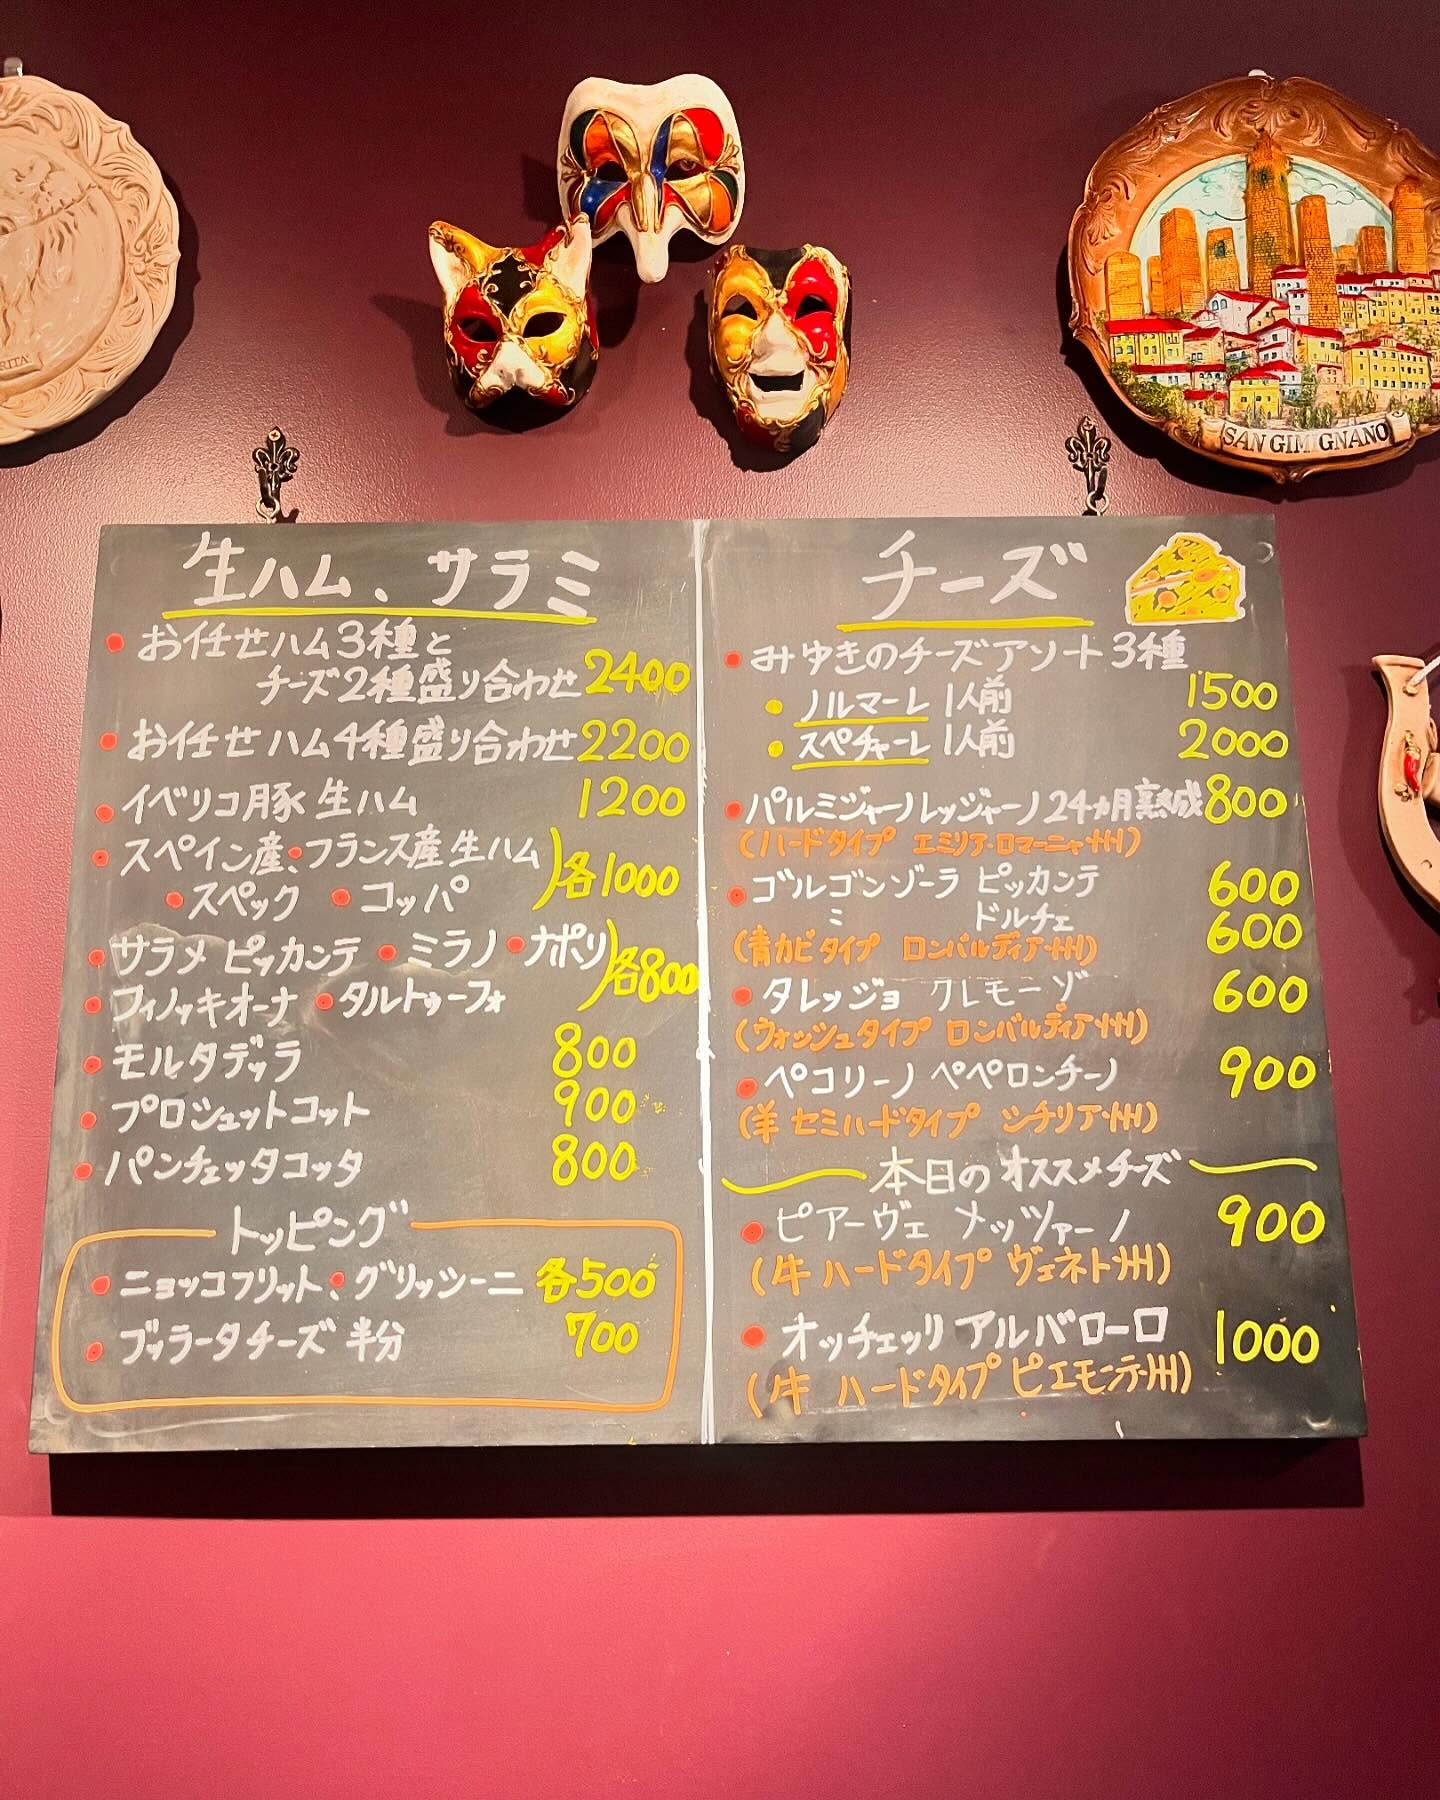 RITA'
SAN GIMIGNANO
生ハム、サラミ
・お任せハム3種と
チーズ2種盛り合わせ 2400
・お任せハム4種盛り合わせ 2200
・イベリコ豚 生ハム 1200
・スペイン産・フランス産生ハム
・スペック ・コッパ 各1000
・サラメ ピッカンテ ・ミラノ ・ナポリ
・フィノッキオーナ ・タルトゥーフォ 各800
・モルタデッラ 800
・プロシュットコット 900
・パンチェッタコッタ 800
トッピング
・ニョッコフリット、・グリッシーニ 各500
・ブッラータチーズ 半分 700
チーズ
・みゆきのチーズアソート3種
・ノルマーレ 1人前 1500
・スペチャーレ 1人前 2000
・パルミジャーノレッジャーノ24ヵ月熟成 800
(ハードタイプ エミリア・ロマーニャ州)
・ゴルゴンゾーラ ピッカンテ 600
ミ ドルチェ 600
(青カビタイプ ロンバルディア州)
・タレッジョ クレモーゾ 600
(ウォッシュタイプ ロンバルディア州)
・ペコリーノ ペペロンチーノ 900
(羊 セミハードタイプ シチリア州)
本日のオススメチーズ
・ピアーヴェ メッツァーノ 900
(牛 ハードタイプ ヴェネト州)
・オッチェッリ アルバローロ 1000
(牛 ハードタイプ ピエモンテ州)